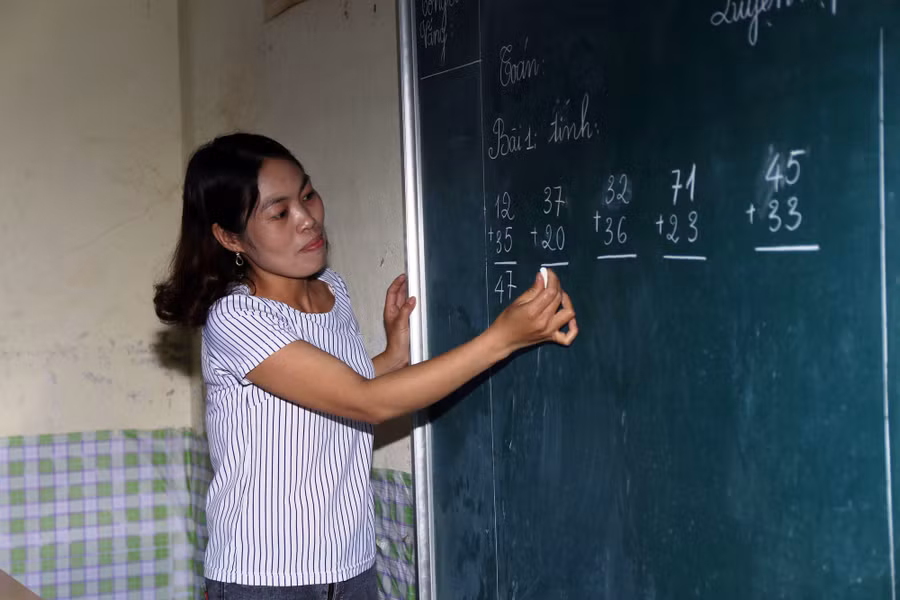 Vắng:
Luyện
Toán:
Bài 1: tính:
12 37 32 71 45
+35 +20 +36 +23 +33
47